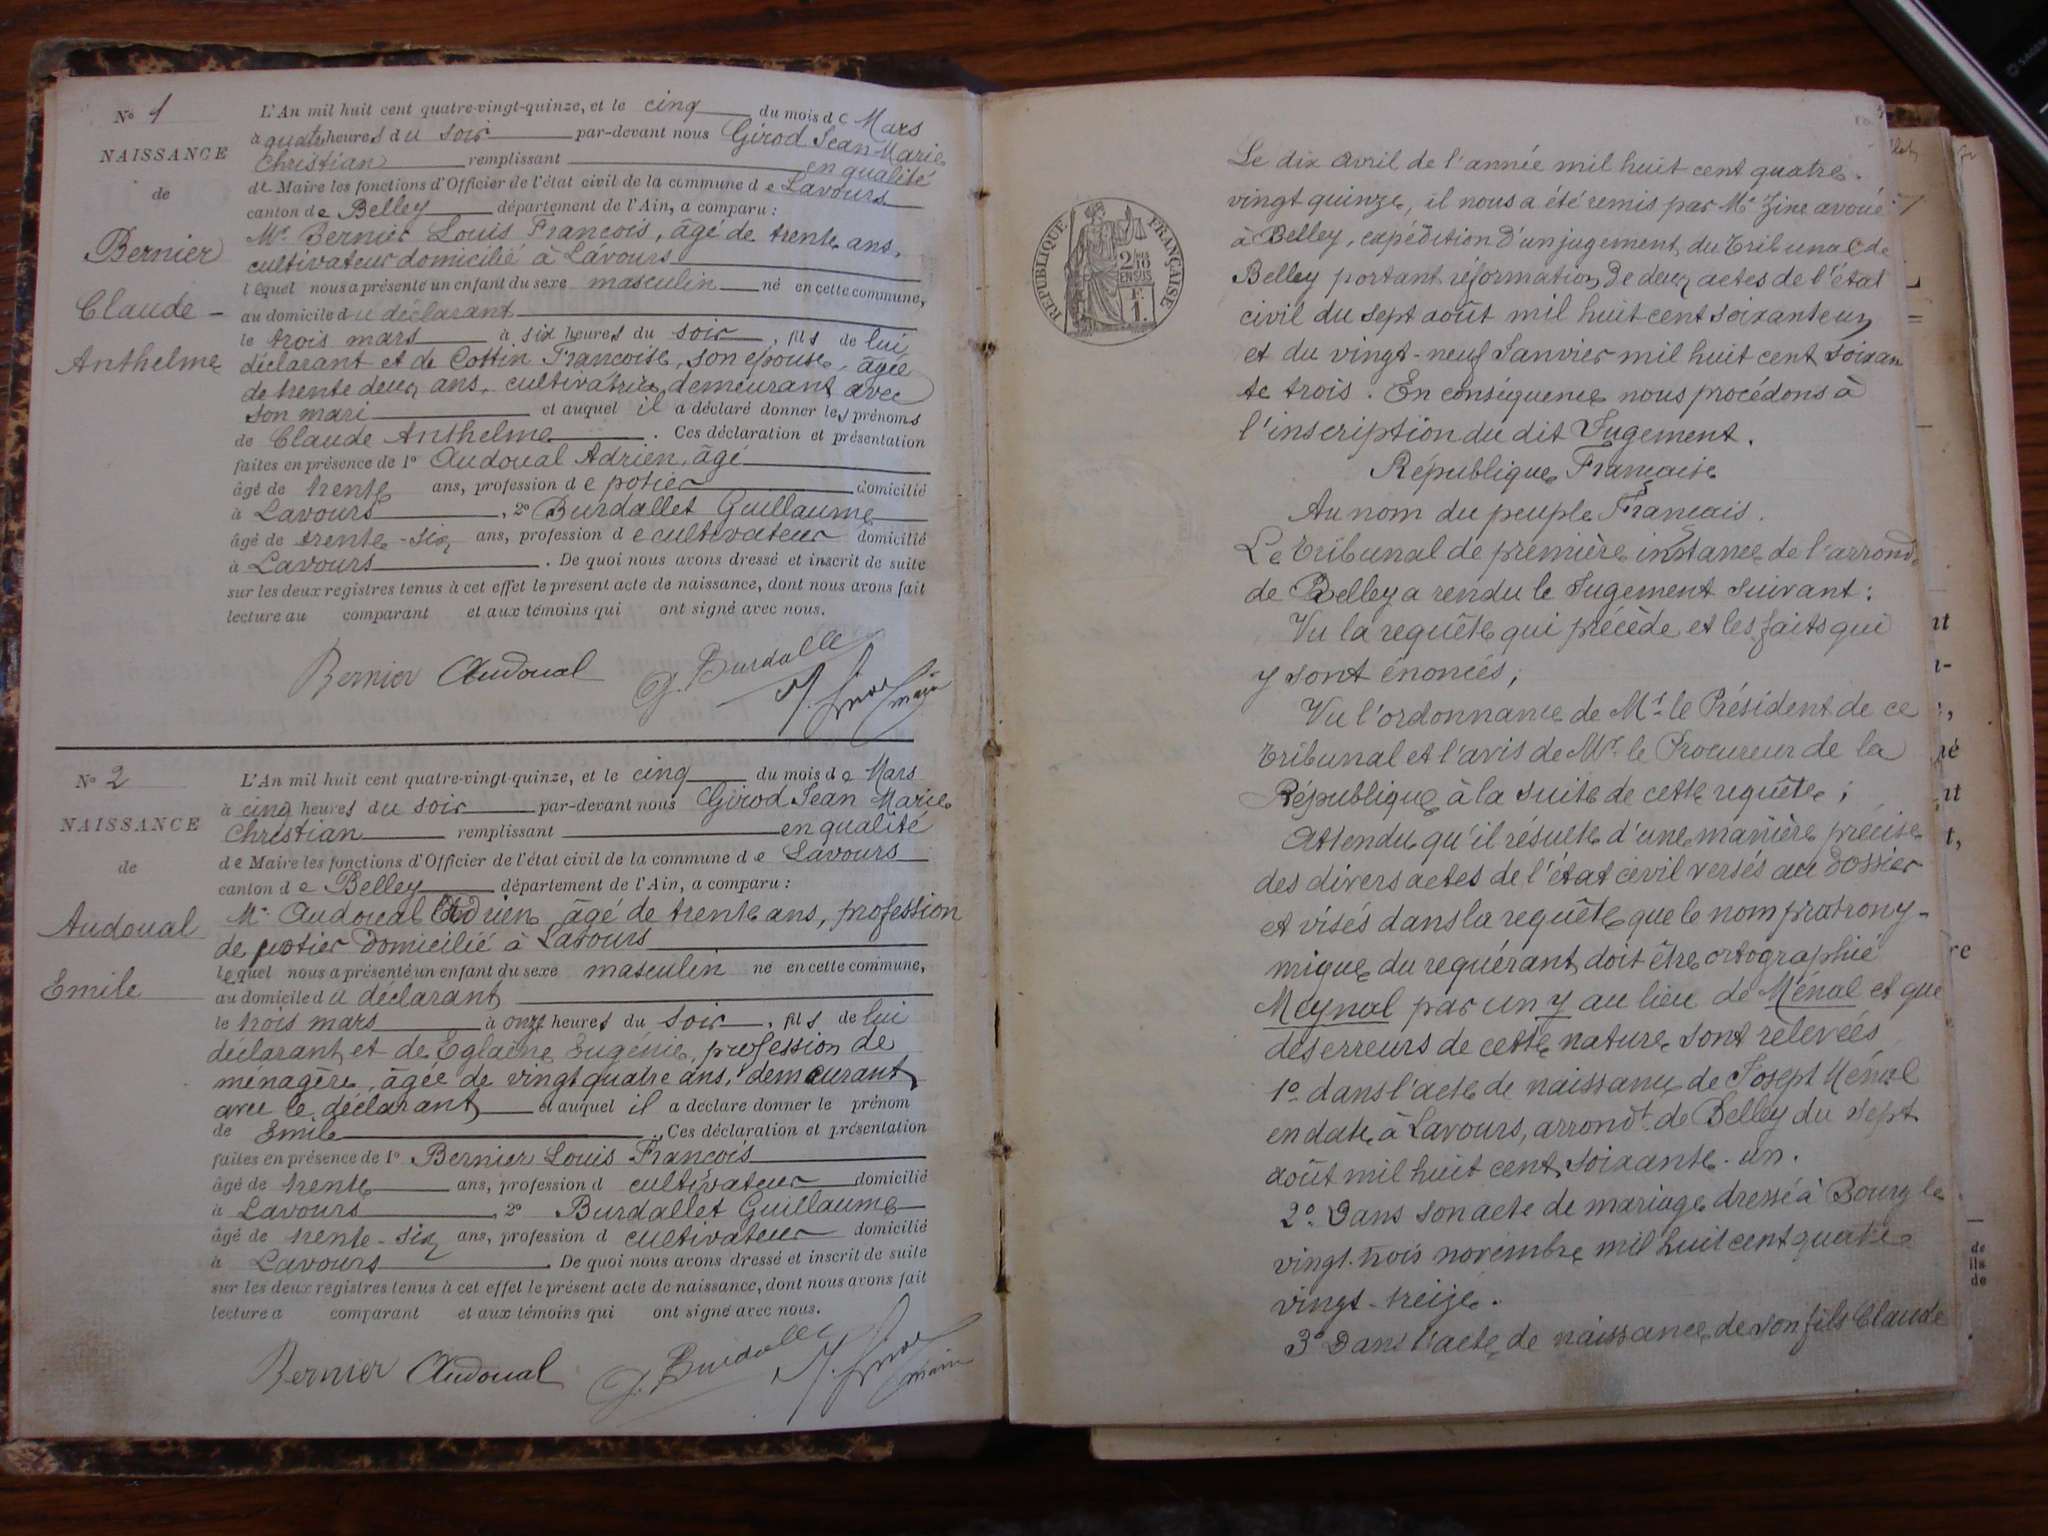 N° 1
NAISSANCE
de
Bernier
Claude -
Anthelme
L'An mil huit cent quatre-vingt-quinze, et le cinq du mois de Mars
à quatre heures du soir par-devant nous Girod Jean-Marie
Christian remplissant en qualité
de Maire les fonctions d'Officier de l'état civil de la commune de Lavours
canton de Belley département de l'Ain, a comparu :
Mr. Bernier Louis François, âgé de trente ans,
cultivateur domicilié à Lavours
lequel nous a présenté un enfant du sexe masculin né en cette commune,
au domicile du déclarant
le trois mars à six heures du soir, fils de lui
déclarant et de Cottin Françoise, son épouse, âgée
de trente deux ans, cultivatrice, demeurant avec
son mari et auquel il a déclaré donner les prénoms
de Claude Anthelme. Ces déclaration et présentation
faites en présence de 1° Audoual Adrien, âgé
âgé de trente ans, profession de potier domicilié
à Lavours, 2° Burdallet Guillaume
âgé de trente-six ans, profession de cultivateur domicilié
à Lavours. De quoi nous avons dressé et inscrit de suite
sur les deux registres tenus à cet effet le présent acte de naissance, dont nous avons fait
lecture au comparant et aux témoins qui ont signé avec nous.
Bernier Audoual G. Burdalle
maire
N° 2
NAISSANCE
de
Audoual
Emile
L'An mil huit cent quatre-vingt-quinze, et le cinq du mois de Mars
à cinq heures du soir par-devant nous Girod Jean Marie
Christian remplissant en qualité
de Maire les fonctions d'Officier de l'état civil de la commune de Lavours
canton de Belley département de l'Ain, a comparu :
Mr. Audoual Adrien âgé de trente ans, profession
de potier domicilié à Lavours
lequel nous a présenté un enfant du sexe masculin né en cette commune,
au domicile du déclarant
le trois mars à onze heures du soir, fils de lui
déclarant et de Eglaine Eugénie, profession de
ménagère, âgée de vingt quatre ans, demeurant
avec le déclarant et auquel il a déclaré donner le prénom
de Emile. Ces déclaration et présentation
faites en présence de 1° Bernier Louis François
âgé de trente ans, profession d cultivateur domicilié
à Lavours 2° Burdallet Guillaume
âgé de trente-six ans, profession d cultivateur domicilié
à Lavours. De quoi nous avons dressé et inscrit de suite
sur les deux registres tenus à cet effet le présent acte de naissance, dont nous avons fait
lecture a comparant et aux témoins qui ont signé avec nous.
Bernier Audoual G. Burdalle
maire
RÉPUBLIQUE FRANÇAISE
2/10
EN SUS
1.
Le dix avril de l'année mil huit cent quatre-
vingt quinze, il nous a été remis par Me Zine avoué
à Belley, expédition d'un jugement du Tribunal de
Belley portant réformation de deux actes de l'état
civil du sept août mil huit cent soixante un
et du vingt-neuf Janvier mil huit cent soixan
te trois. En conséquence nous procédons à
l'inscription du dit Jugement.
République Francaise
Au nom du peuple Francais.
Le Tribunal de première instance de l'arrond.
de Belley a rendu le Jugement suivant :
Vu la requête qui précède et les faits qui
y sont énoncés ;
Vu l'ordonnance de Mr le Président de ce
Tribunal et l'avis de Mr. le Procureur de la
République à la suite de cette requête ;
Attendu qu'il résulte d'une manière précise
des divers actes de l'état civil versés au dossier
et visés dans la requête que le nom pratrony-
mique du requérant doit être ortographié
Meynal par un y au lieu de Ménal et que
des erreurs de cette nature sont relevées
1° dans l'acte de naissance de Josept Ménal
en date à Lavours, arrondt. de Belley du sept
août mil huit cent soixante-un.
2° Dans son acte de mariage dressé à Bourg le
vingt-trois novembre mil huit cent quatre-
vingt-treize.
3° Dans l'acte de naissance de son fils Claude